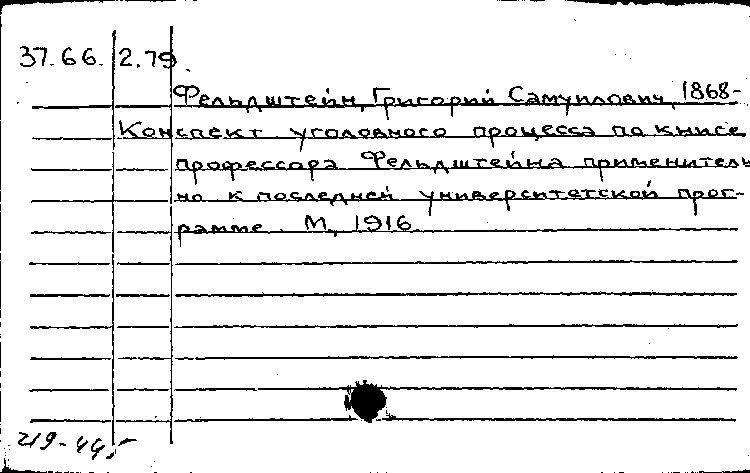 37.66. 2.79.
Фельдштейн, Григорий Самуилович, 1868-
Конспект уголовного процесса по книге
профессора Фельдштейна применитель
но к последней университетской прог-
рамме. М., 1916
219-44,5